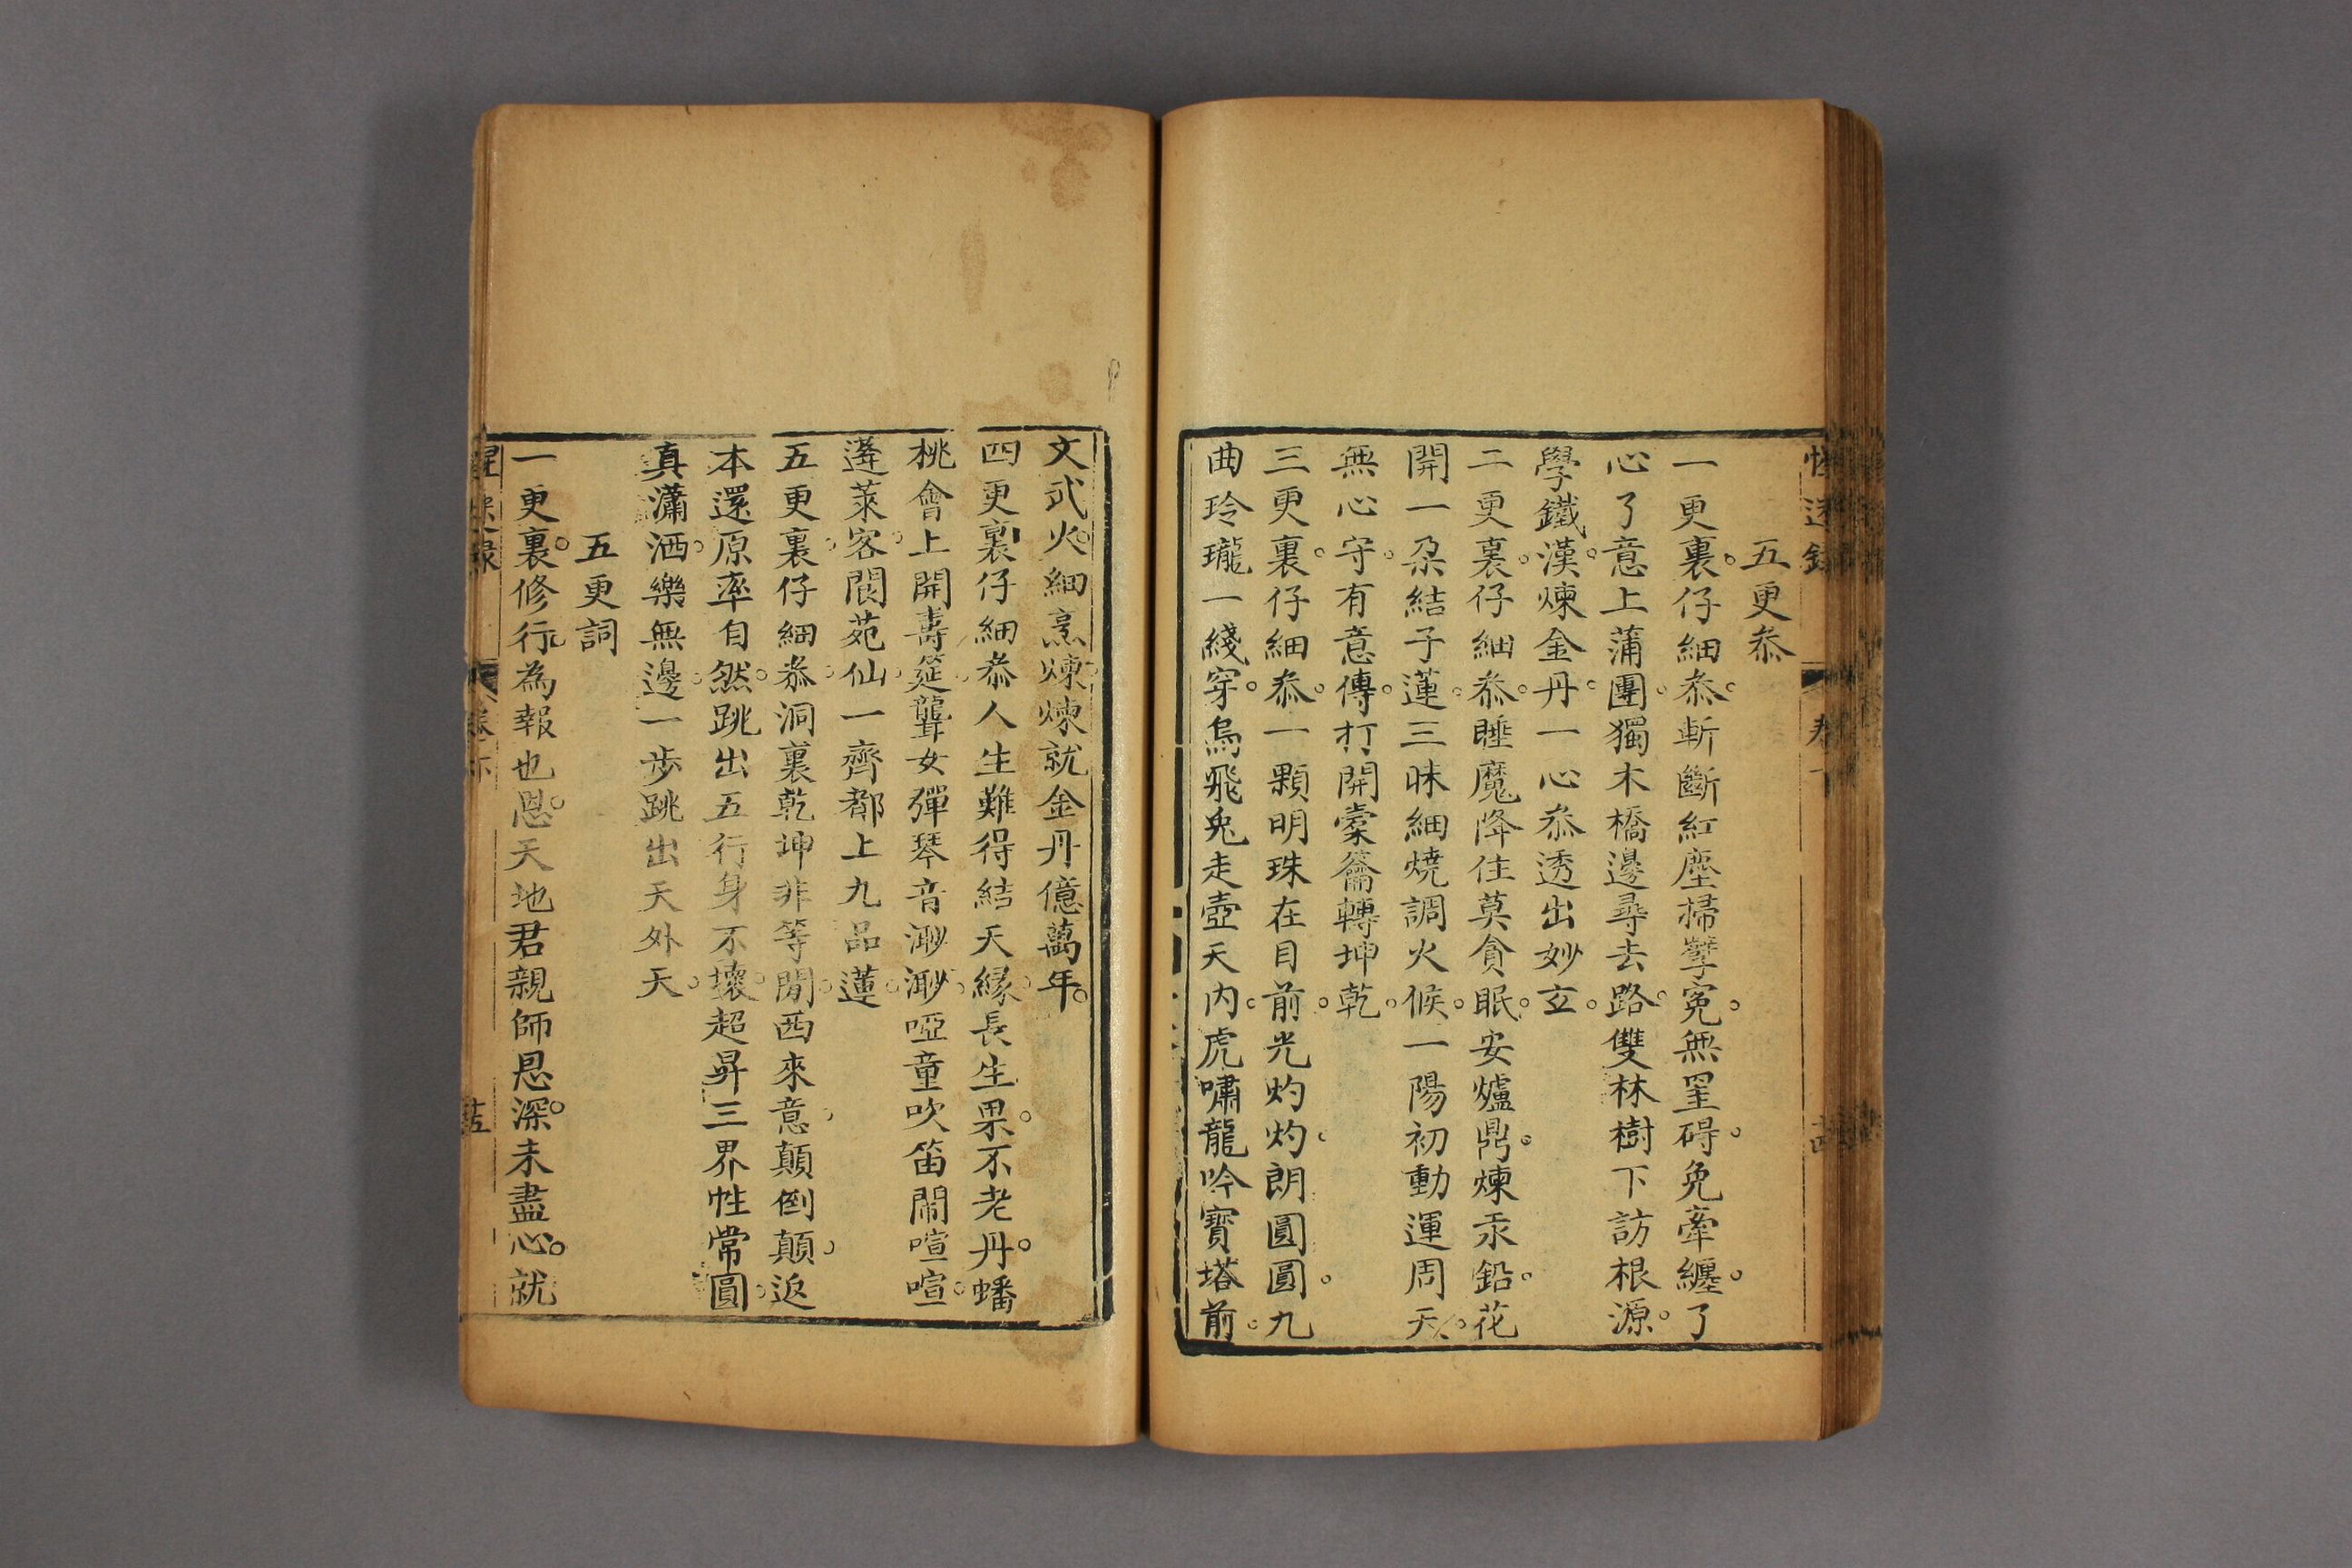 五更叅
一更裏。仔細叅。斬斷紅塵掃孽寃。無罣碍。免牽纏。了
心了意上蒲團。獨木橋邊尋去路。雙林樹下訪根源。
學鐵漢。煉金丹。一心叅透出妙玄。
二更裏。仔細叅。睡魔降住莫貪眠。安爐鼎。煉汞鉛。花
開一朶結子蓮。三昧細燒調火候。一陽初動運周天。
無心守。有意傳。打開橐籥轉坤乾。
三更裏。仔細叅。一顆明珠在目前。光灼灼。朗圓圓。九
曲玲瓏一綫穿。烏飛兎走壺天內。虎嘯龍吟寳塔前。
文武火。細烹煉。煉就金丹億萬年。
四更裏仔細叅人生難得結天緣。長生果。不老丹。蟠
桃會上開壽筵。聾女彈琴音渺渺。啞童吹笛鬧喧喧。
蓬萊客。閬苑仙。一齊都上九品蓮。
五更裏。仔細叅。洞裏乾坤非等閒。西來意。顛倒顛。返
本還原率自然。跳出五行身不壞。超昇三界性常圓。
真瀟洒。樂無邊。一步跳出天外天。
五更詞
一更裏。修行為報也恩。天地君親師恩深。未盡心。就
卷下